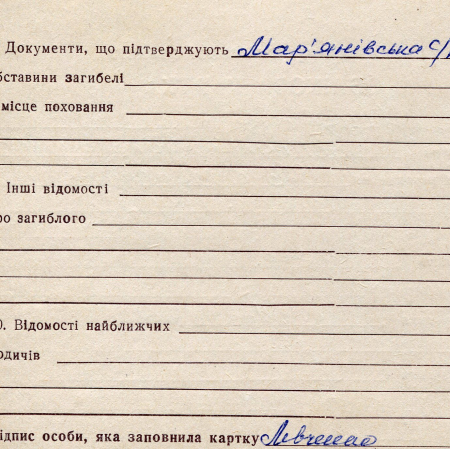 Документи, що підтверджують Мар'янівська с/
бставини загибелі
місце поховання
Інші відомості
ро загиблого
0. Відомості найближчих
одичів
ідпис особи, яка заповнила картку Левченко